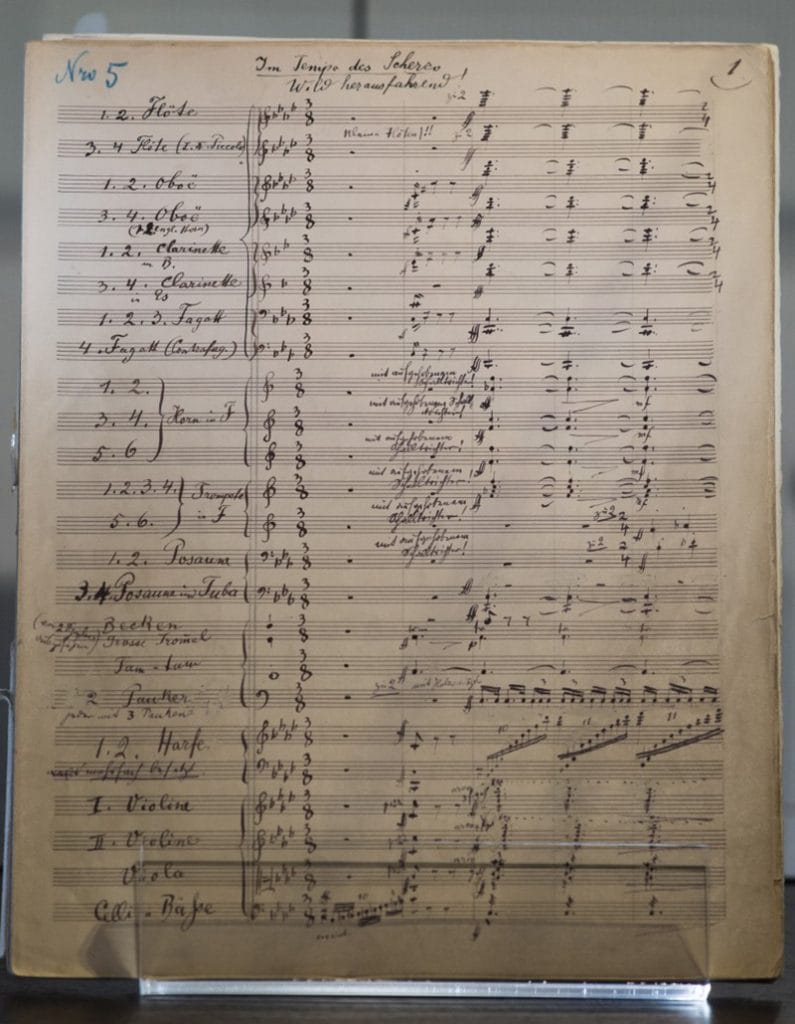 Nro 5
Im Tempo des Scherzo
Wild herausfahrend!
1
1. 2. Flöte
3. 4 Flöte (I. II. Piccolo)
1. 2. Oboë
3. 4. Oboë
1. 2. Clarinette
in B.
3. 4. Clarinette
in Es
1. 2. 3. Fagott
4. Fagott (Contrafag.)
1. 2.
mit aufgehobenem
Schalltrichter!
3. 4.
Horn in F
mit aufgehobenem
5. 6
mit aufgehobenem
Schalltrichter!
1. 2. 3. 4.
Trompete
in F
mit aufgehobenem
Schalltrichter!
5. 6.
mit aufgehobenem
Schalltrichter!
1. 2. Posaune
mit aufgehobenem
Schalltrichter!
3. 4. Posaune und Tuba
Becken
Grosse Trommel
Tam-tam
2 Pauker
jeder mit 3 Pauken
1. 2. Harfe
I. Violine
II. Violine
Viola
Celli u Bässe